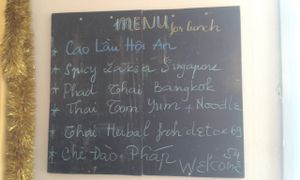 MENU for lunch
Cao Lầu Hội An
Spicy Laksa Singapore
Phad Thai Bangkok
Thai Tom Yum + Noodle
Thai Herbal fresh detox 69
Chè Đào Pháp 54
Welcome